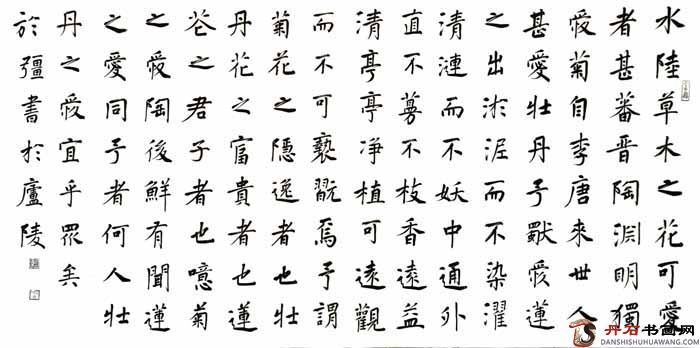 水陸草木之花可愛
者甚蕃晋陶渊明獨
愛菊自李唐来世人
甚愛壮丹予獸愛蓮
之出淤泥而不染濯
清漣而不妖中通外
直不蔓不枝香遠益
清亭亭净植可遠觀
而不可褻翫焉予謂
菊花之隠逸者也壮
丹花之富貴者也蓮
花之君子者也噫菊
之愛陶後鮮有聞蓮
之愛同予者何人壮
丹之愛宜乎眾矣
於疆書於廬陵
丹石书画网
DANSHISHUHUAWANG.COM